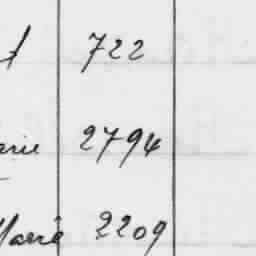 722
2794
Marie 2209